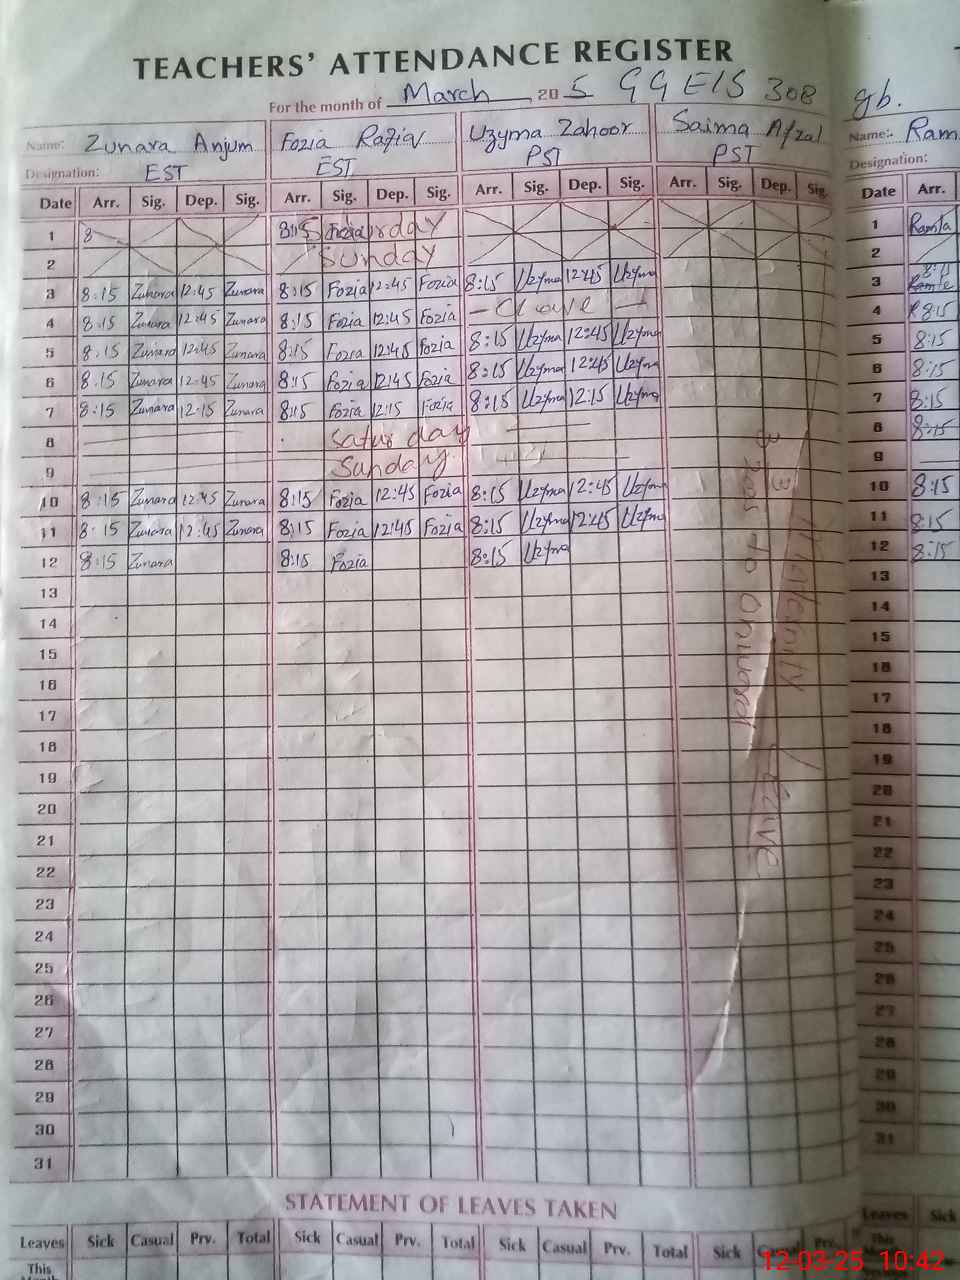 TEACHERS' ATTENDANCE REGISTER
For the month of March, 20 5 GGE/S 308
gb.
Name: Zunara Anjum Fozia Uzyma Zahoor Saima Afzal Name:
Designation: EST EST PST PST Designation:
Date Arr. Sig. Dep. Sig. Arr. Sig. Dep. Sig. Arr. Sig. Dep. Sig. Arr. Sig. Dep. Sig. Date Arr.
1 8 8:15 1 Ramla
2 Sunday 2
3 8:15 Zunara 12:45 Zunara 8:15 Fozia 12:45 Fozia 8:15 Uzyma 12:45 Uzyma 3 8:15
4 8:15 Zunara 12:45 Zunara 8:15 Fozia 12:45 Fozia 4 8:15
5 8:15 Zunara 12:45 Zunara 8:15 Fozia 12:45 Fozia 8:15 Uzyma 12:45 Uzyma 5 8:15
6 8:15 Zunara 12:45 Zunara 8:15 Fozia 12:45 Fozia 8:15 Uzyma 12:45 Uzyma 6 8:15
7 8:15 Zunara 12:15 Zunara 8:15 Fozia 12:15 Fozia 8:15 Uzyma 12:15 Uzyma 7 8:15
8 Saturday 8 8:15
9 Sunday 9
10 8:15 Zunara 12:45 Zunara 8:15 Fozia 12:45 Fozia 8:15 Uzyma 12:45 Uzyma 10 8:15
11 8:15 Zunara 12:45 Zunara 8:15 Fozia 12:45 Fozia 8:15 Uzyma 12:45 Uzyma 11 8:15
12 8:15 Zunara 8:15 Fozia 8:15 Uzyma 12 8:15
13 13
14 14
15 15
16 16
17 17
18 18
19 19
20 20
21 21
22 22
23 23
24 24
25 25
26 26
27 27
28 28
29 29
30 30
31 31
Maternity Leave
to onward
STATEMENT OF LEAVES TAKEN
Leaves Sick Casual Prv. Total Sick Casual Prv. Total Sick Casual Prv. Total Sick Casual Prv. Leaves Sick
This This
12-03-25 10:42